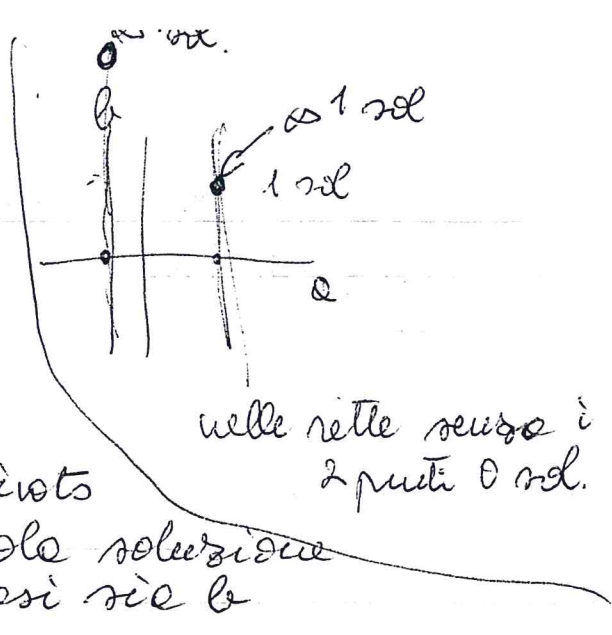 sol.
b
∞ 1 sol
1 sol
a
nelle rette senza i
2 punti 0 sol.
ola soluzione
asi sia b